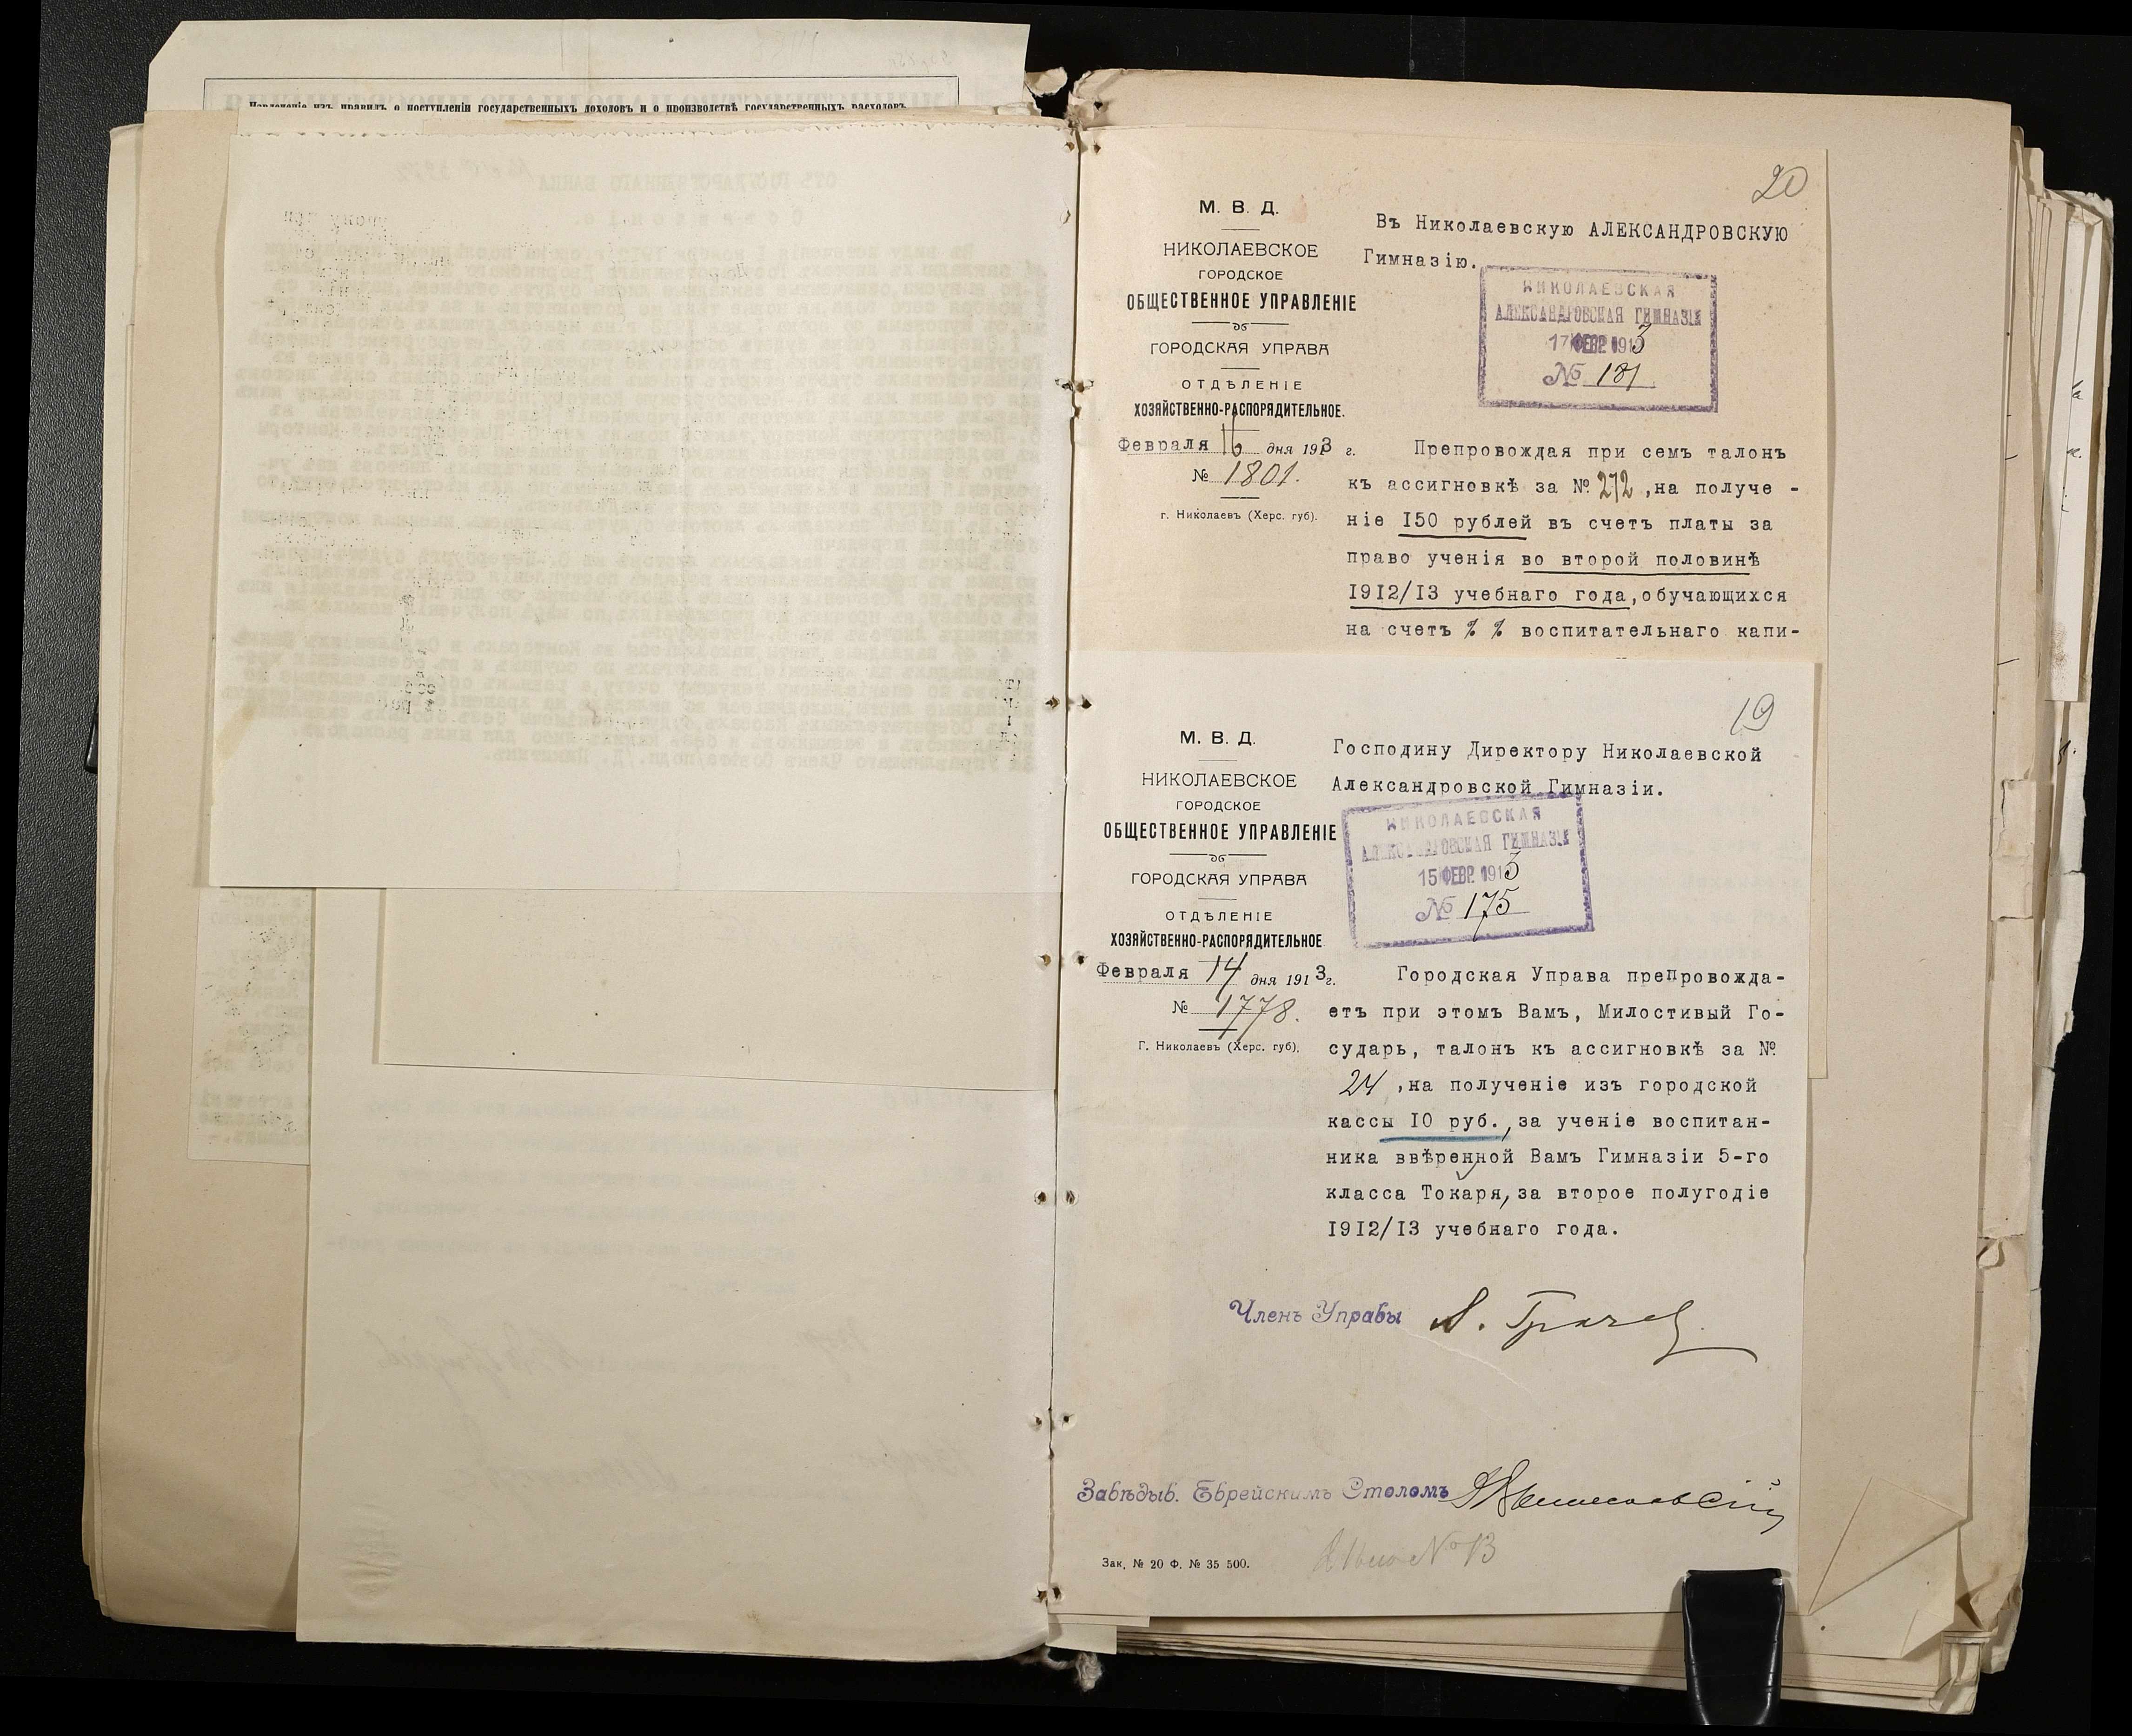 Извлеченіе изъ правилъ о поступленіи государственныхъ доходовъ и о производствѣ государственныхъ расходовъ
20
М. В. Д.
НИКОЛАЕВСКОЕ
ГОРОДСКОЕ
ОБЩЕСТВЕННОЕ УПРАВЛЕНІЕ
ГОРОДСКАЯ УПРАВА
ОТДѢЛЕНІЕ
ХОЗЯЙСТВЕННО-РАСПОРЯДИТЕЛЬНОЕ.
Февраля 16 дня 1913 г.
№ 1801.
г. Николаевъ (Херс. губ).
Въ Николаевскую АЛЕКСАНДРОВСКУЮ
Гимназію.
НИКОЛАЕВСКАЯ
АЛЕКСАНДРОВСКАЯ ГИМНАЗІЯ
17 ФЕВР. 1913
№ 181
Препровождая при семъ талонъ
къ ассигновкѣ за № 272 ,на получе -
ніе 150 рублей въ счетъ платы за
право ученія во второй половинѣ
1912/13 учебнаго года,обучающихся
на счетъ % % воспитательнаго капи-
19
М. В. Д.
НИКОЛАЕВСКОЕ
ГОРОДСКОЕ
ОБЩЕСТВЕННОЕ УПРАВЛЕНІЕ
ГОРОДСКАЯ УПРАВА
ОТДѢЛЕНІЕ
ХОЗЯЙСТВЕННО-РАСПОРЯДИТЕЛЬНОЕ
Февраля 14 дня 1913г.
№ 1778.
Г. Николаевъ (Херс. губ).
Господину Директору Николаевской
Александровской Гимназіи.
НИКОЛАЕВСКАЯ
АЛЕКСАНДРОВСКАЯ ГИМНАЗІЯ
15 ФЕВР. 1913
№ 175
Городская Управа препровожда-
етъ при этомъ Вамъ, Милостивый Го-
сударь, талонъ къ ассигновкѣ за №
24 ,на полученіе изъ городской
кассы 10 руб., за ученіе воспитан-
ника ввѣренной Вамъ Гимназіи 5-го
класса Токаря, за второе полугодіе
1912/13 учебнаго года.
Членъ Управы
Завѣдыв. Еврейскимъ Столомъ
Зак. № 20 Ф. № 35 500.